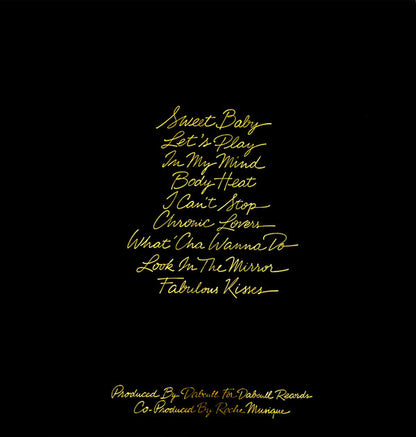 Sweet Baby
Let's Play
In My Mind
Body Heat
I Can't Stop
Chronic Lovers
What' Cha Wanna Do
Look In The Mirror
Fabulous Kisses
Produced By Dabeull For Dabeull Records
Co-Produced By Roche Musique